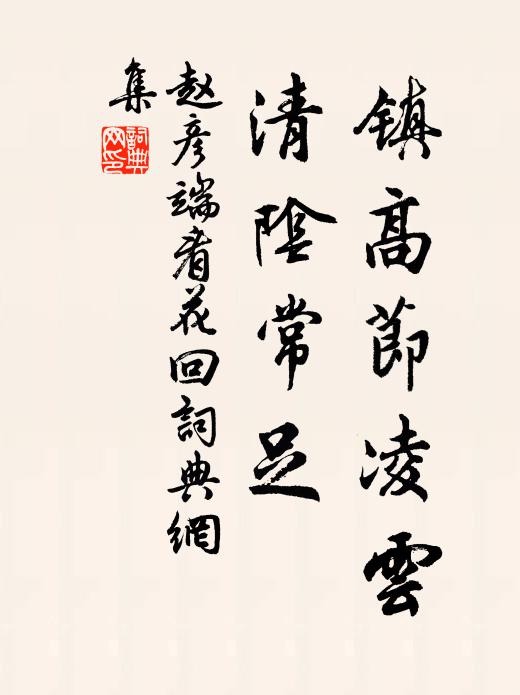 镇高節凌雲
清陰常足
赵彦端看花回詞典網
集
詞典網印